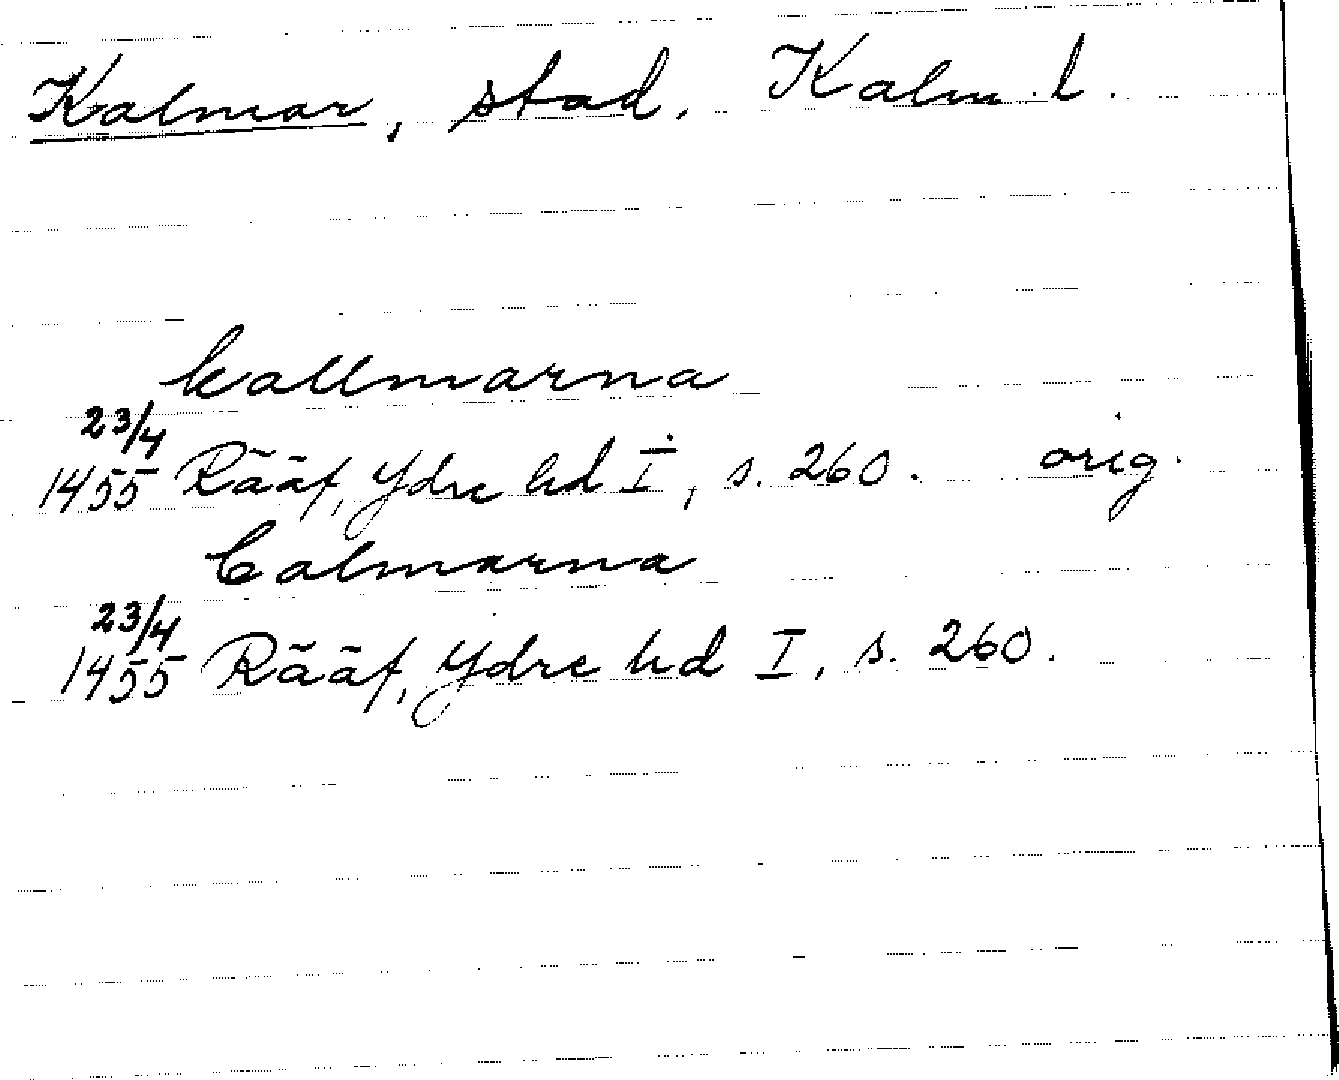 Kalmar, stad. Kalm. l.
kallmarna
23/4
1455 Rääf, Ydre hd I, s. 260. orig.
Calmarna
23/4
1455 Rääf, Ydre hd I, s. 260.